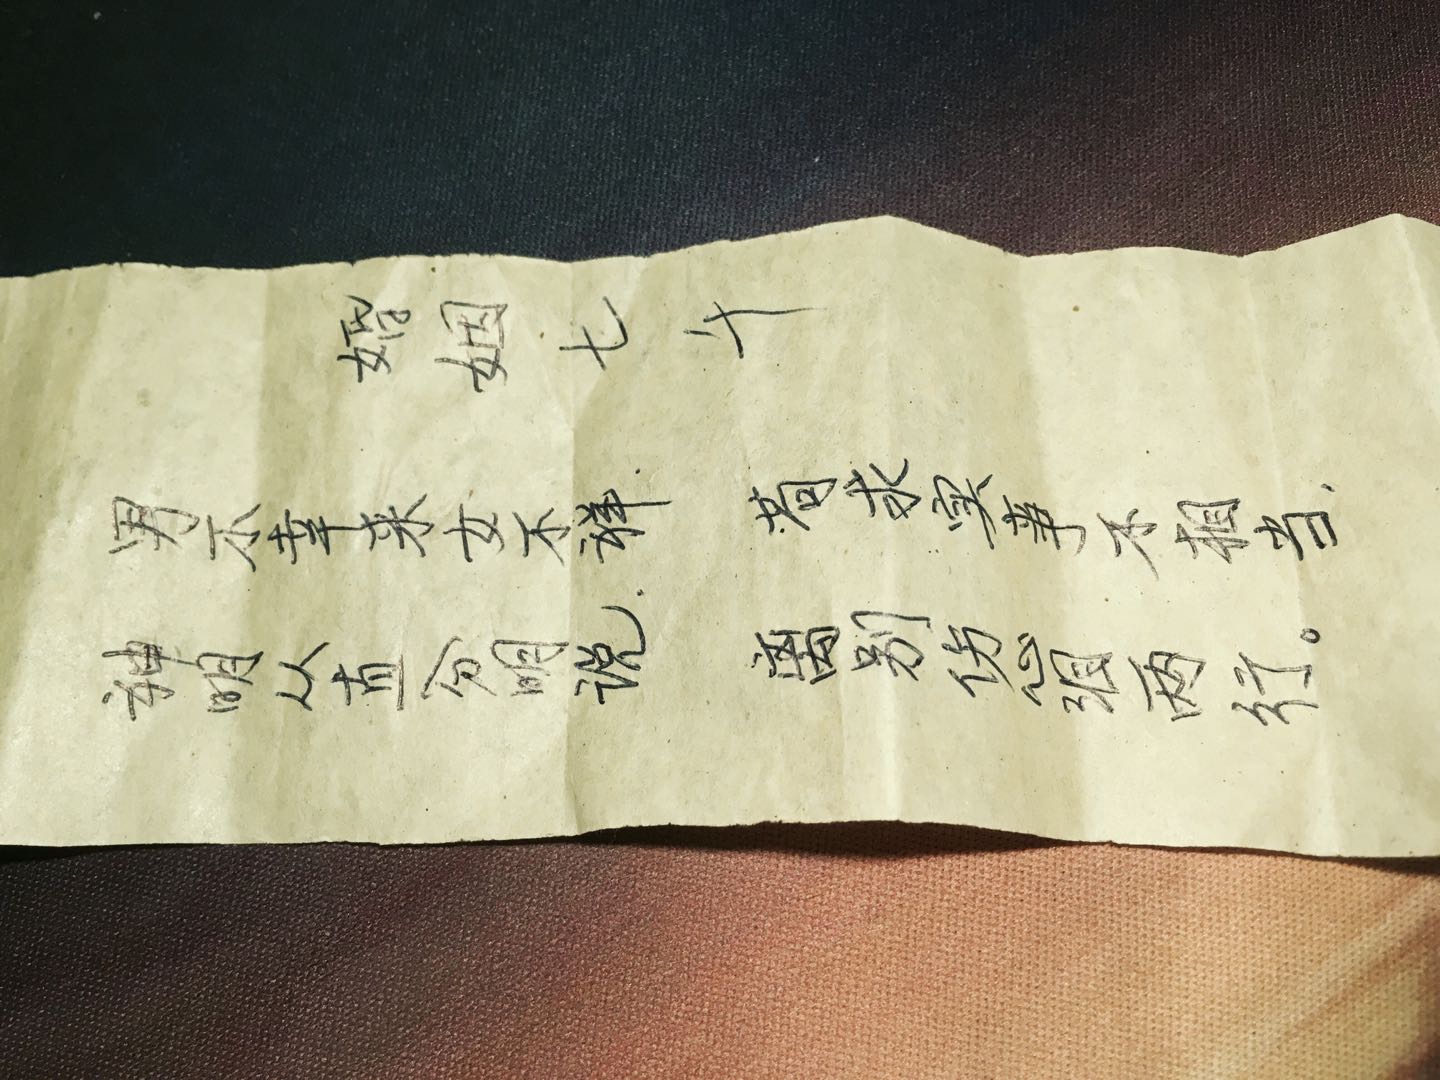 婚姻七午
男不幸来女不祥. 若求实事不相当.
神明从直分明说. 离别伤心泪两行。